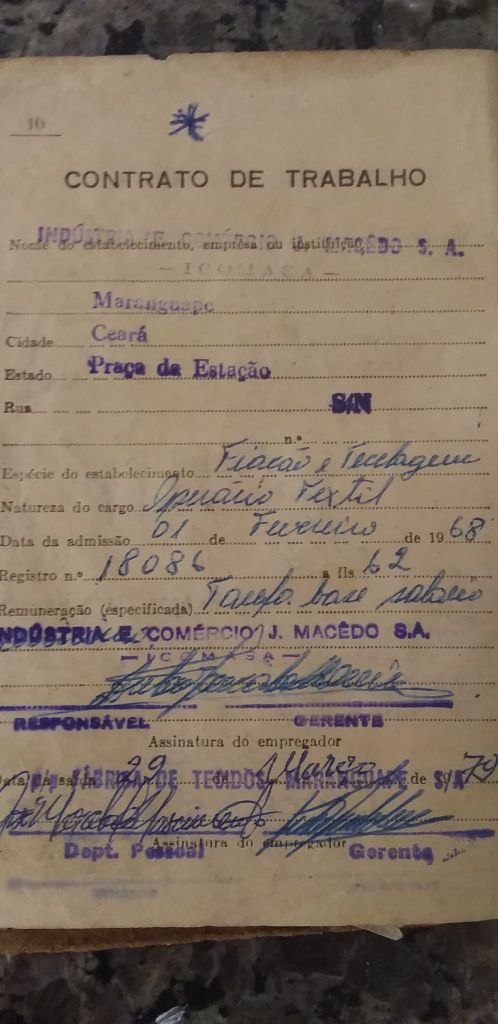 10
CONTRATO DE TRABALHO
INDÚSTRIA E COMÉRCIO J. MACÊDO S. A.
Nome do estabelecimento, empresa ou instituição
Maranguape
Cidade Ceará
Estado Praça da Estação
Rua S/N
n.º
Espécie do estabelecimento Fiacão e Tecelagem
Natureza do cargo Operário Textil
Data da admissão 01 de Fevereiro de 1968
Registro n.º 18086 a fls 62
Remuneração (especificada) Tarefa base salario
INDÚSTRIA E COMÉRCIO J. MACÊDO S.A.
RESPONSÁVEL GERENTE
Assinatura do empregador
Data da saída 29 de Março de 1979
FÁBRICA DE TECIDOS MARANGUAPE S/A
Assinatura do empregador
Dept. Pessoal Gerente